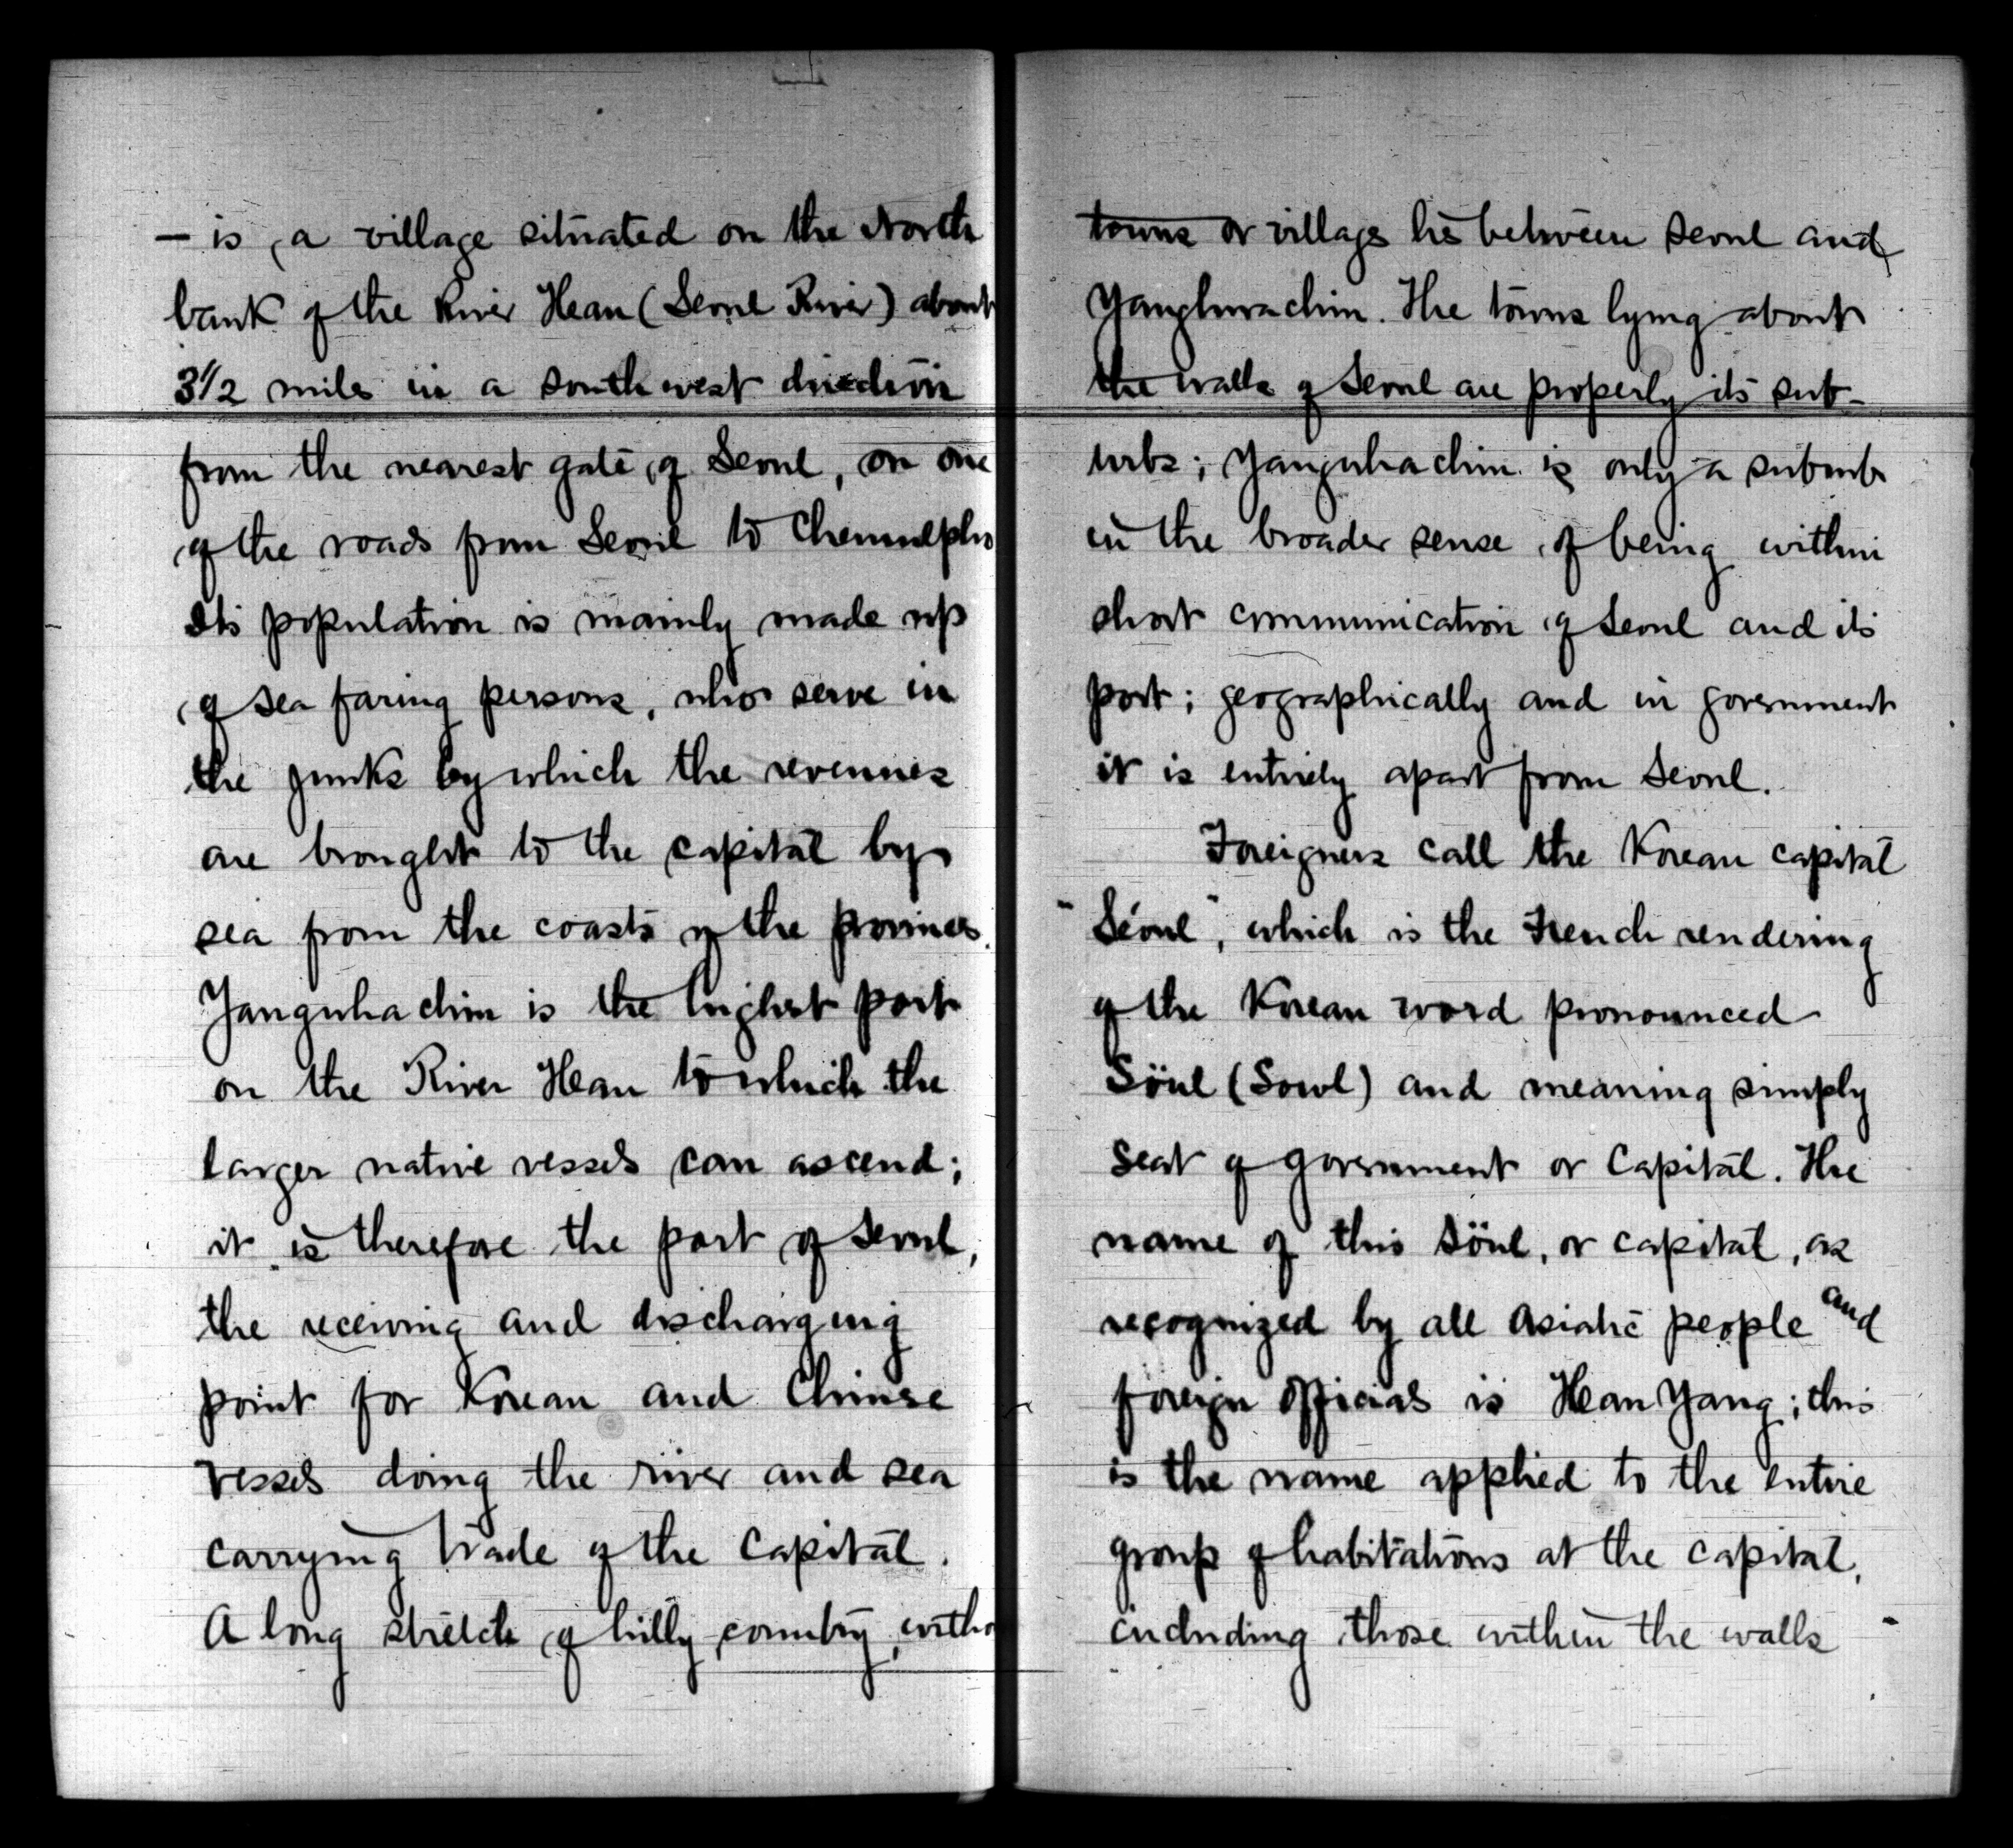 — is a village situated on the North
bank of the River Hean (Seoul River) about
3 1/2 miles in a south west direction
from the nearest gate of Seoul, on one
of the roads from Seoul to Chemulpho
Its population is mainly made up
of sea faring persons, who serve in
the junks by which the revenues
are brought to the capital by
sea from the coasts of the provinces.
Yangwhachin is the highest port
on the River Hean to which the
larger native vessels can ascend;
it is therefore the port of Seoul,
the receiving and discharging
point for Korean and Chinese
vessels doing the river and sea
carrying trade of the Capital.
A long stretch of hilly country witho
towns or villages lies between Seoul and
Yanghwachin. The towns lying about
the walls of Seoul are properly its sub-
urbs; Yangwhachin is only a suburb
in the broader sense of being within
short communication of Seoul and its
port; geographically and in government
it is entirely apart from Seoul.
Foreigners call the Korean capital
"Séoul", which is the French rendering
of the Korean word pronounced
Söul (Sowl) and meaning simply
seat of government or Capital. The
name of this Söul, or capital, as
recognized by all Asiatic people and
foreign officials is Hean Yang; this
is the name applied to the entire
group of habitations at the capital,
including those within the walls